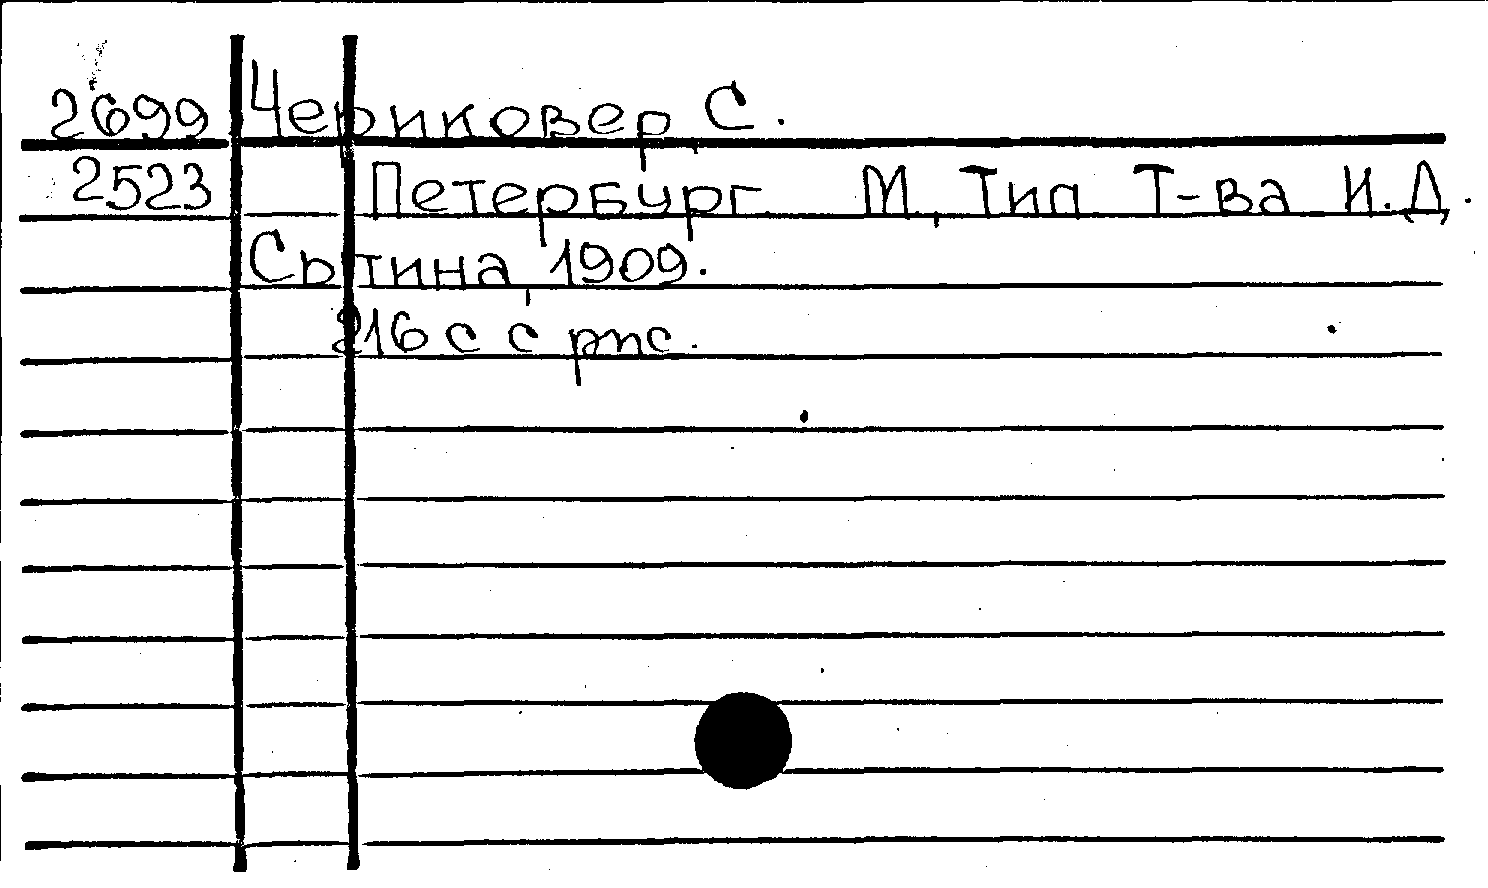 2699 Чериковер, С.
2523 Петербург М, Тип Т-ва И.Д.
Сытина, 1909.
216 с с рис.